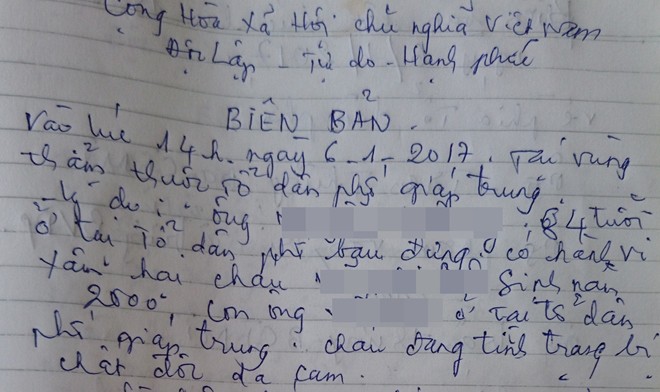 Cộng Hòa Xã Hội chủ nghĩa Việt Nam
Độc Lập - Tự do - Hạnh phúc
BIÊN BẢN.
Vào lúc 14h. ngày 6-1-2017. Tại vùng
thảm thuộc tổ dân phố giáp trung.
- Lý do: ông 84 tuổi
ở tại Tổ dân phố có hành vi
xâm hại cháu Sinh năm
2000, con ông ở tại tổ dân
phố giáp trung. cháu đang tình trạng bị
chất độc da cam.